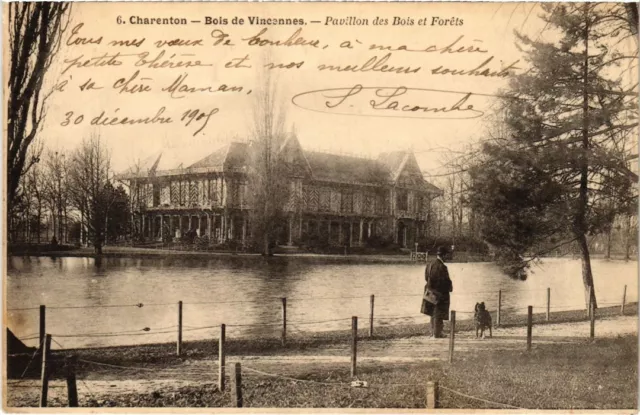 6. Charenton - Bois de Vincennes. - Pavillon des Bois et Forêts
Tous mes vœux de bonheur, à ma chère
petite Thérèse et nos meilleurs souhaits
à sa chère Maman,
S. Lacombe
30 décembre 1905